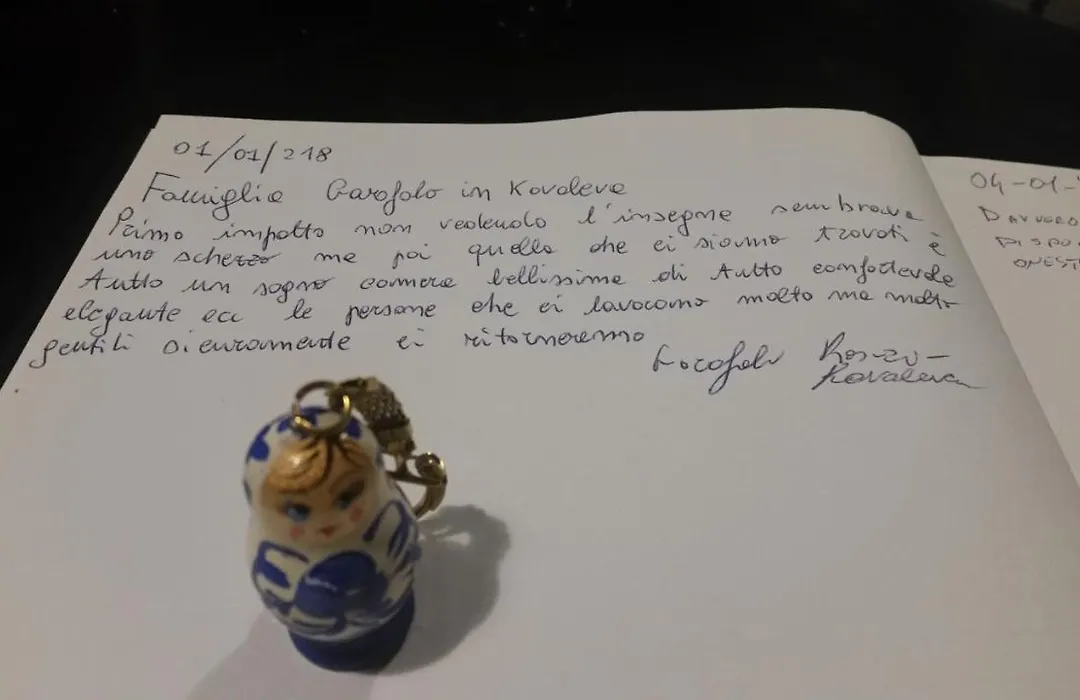 01/01/218
Famiglia Garofolo in Kovaleva
Primo impatto non vedendo l'insegne sembrava
uno scherzo ma poi quello che ci siamo trovati è
tutto un sogno camere bellissime di tutto confortevole
elegante ecc le persone che ci lavorano molto ma molto
gentili sicuramente ci ritorneremo
Kovaleva
04-01-
DAVVERO
DISPO
ONEST